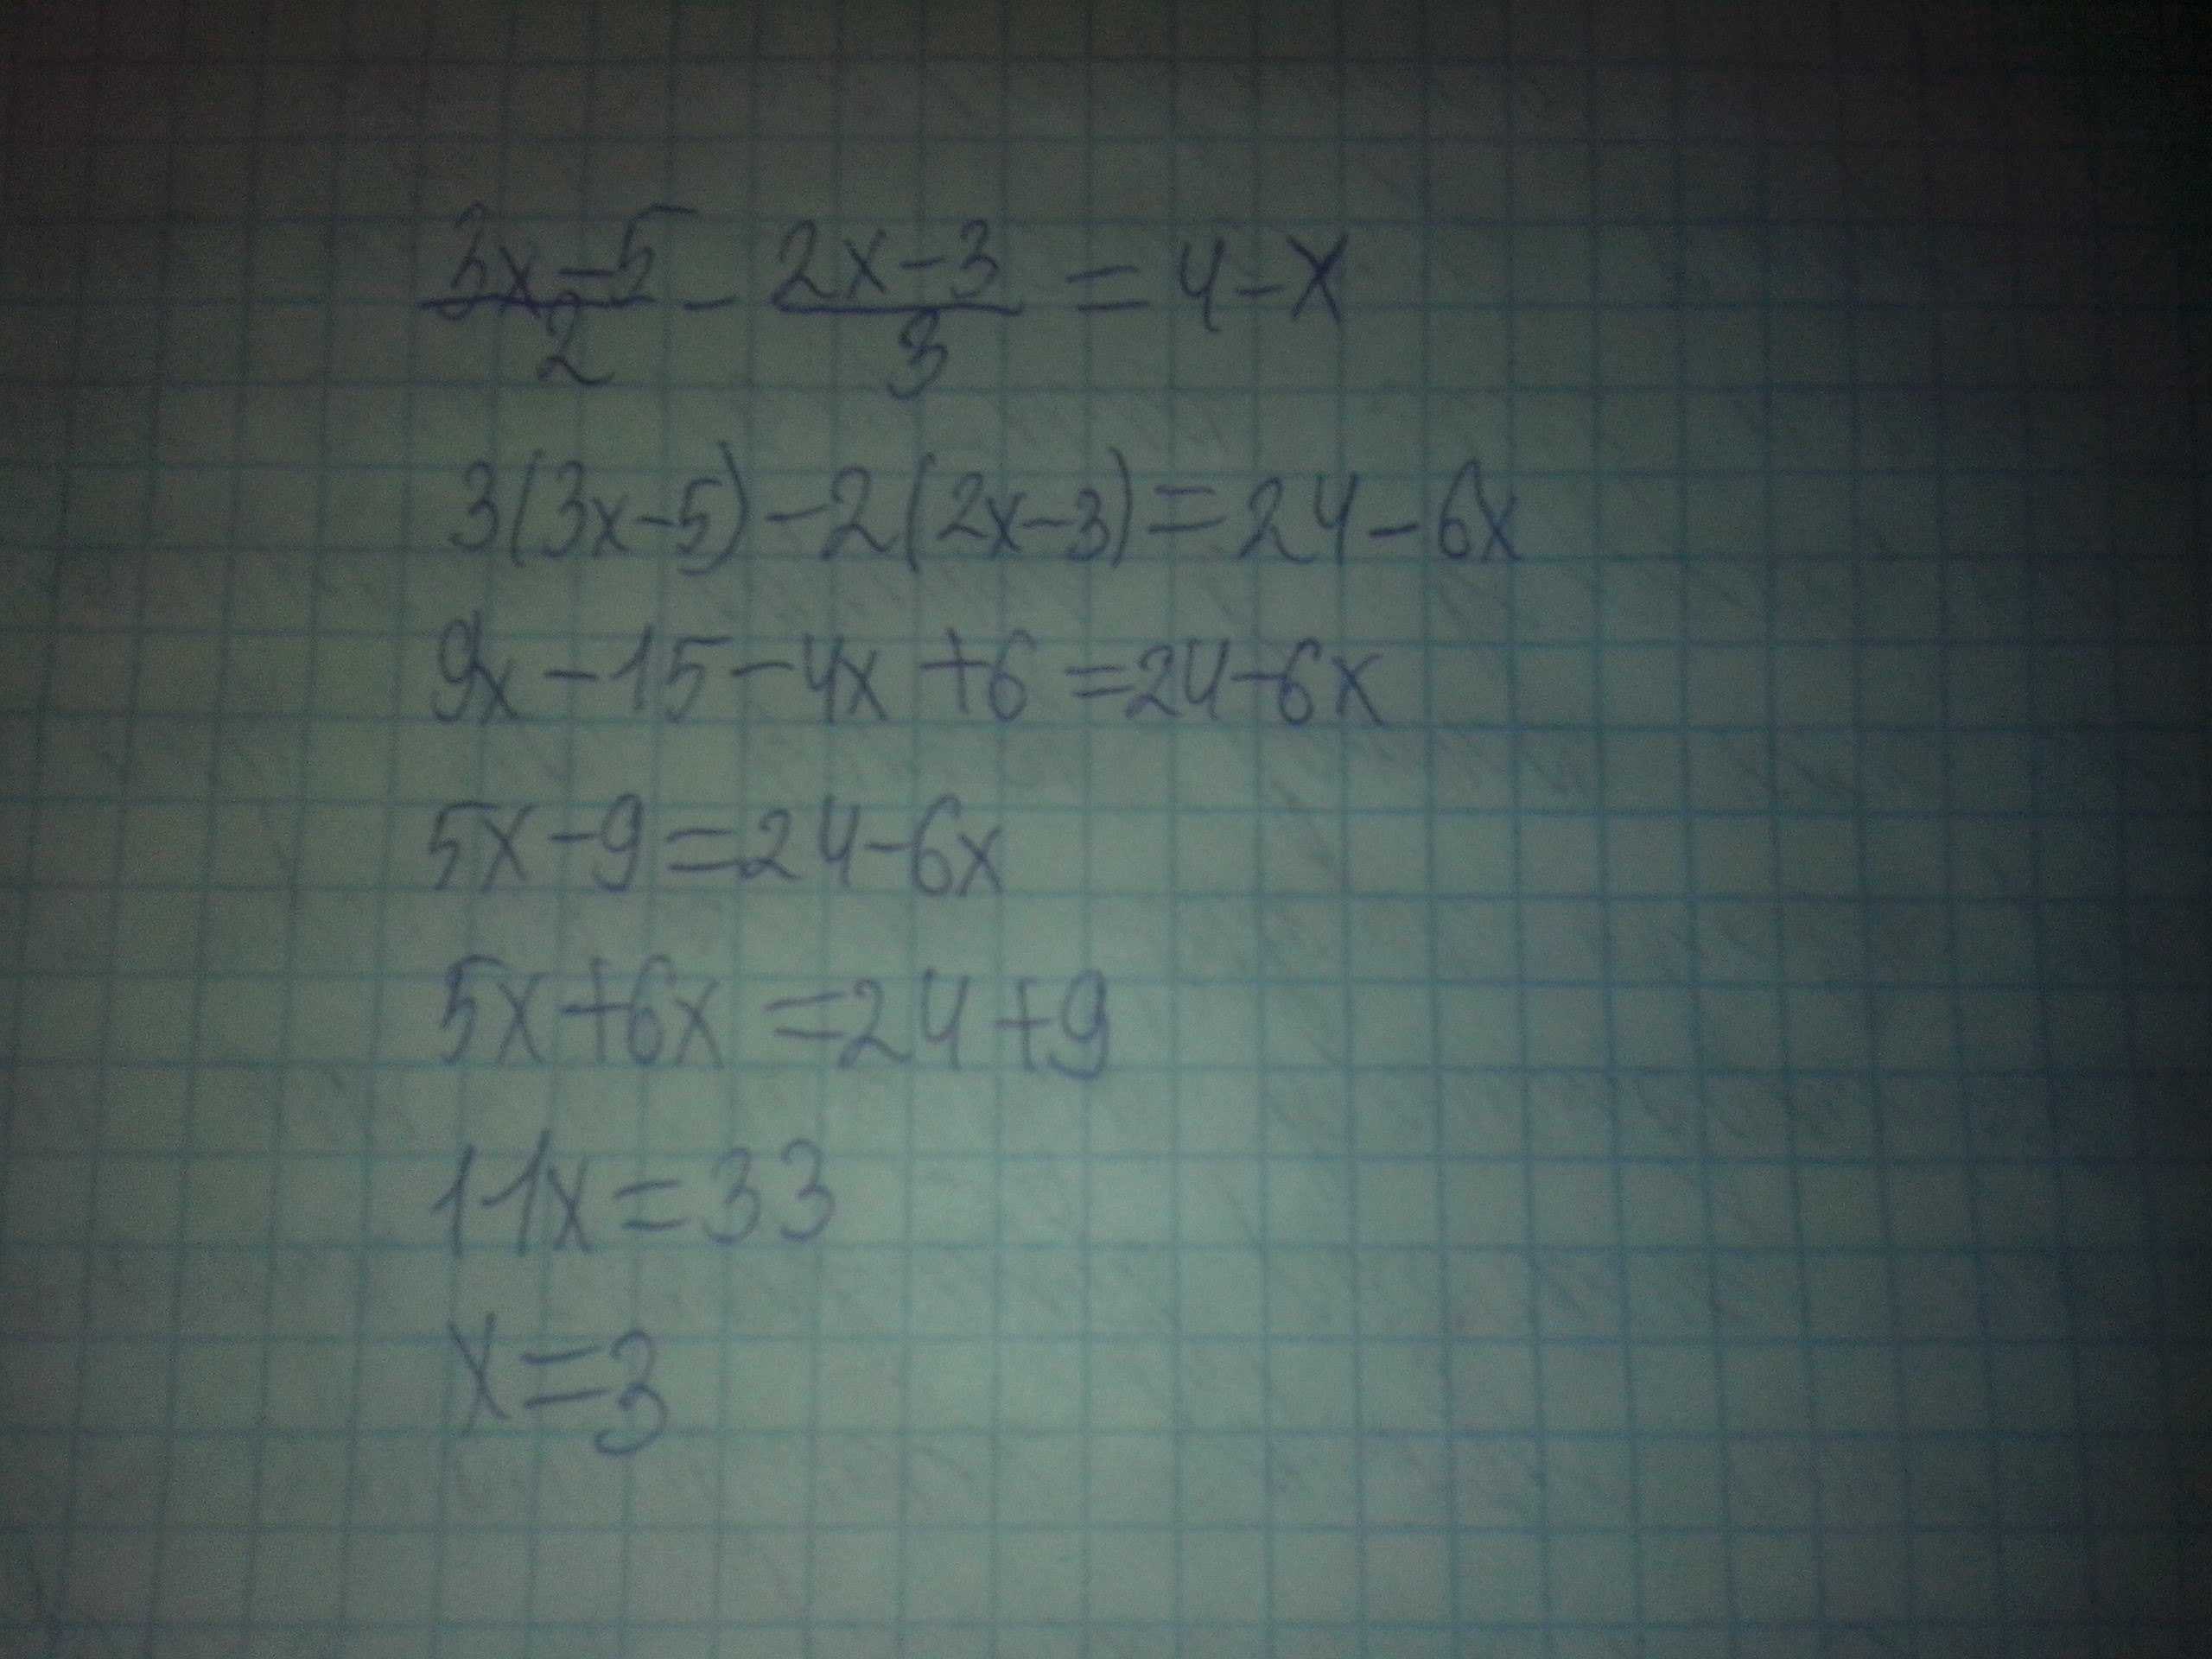 (3x-5)/2 - (2x-3)/3 = 4-x
3(3x-5)-2(2x-3)=24-6x
9x-15-4x+6=24-6x
5x-9=24-6x
5x+6x=24+9
11x=33
x=3